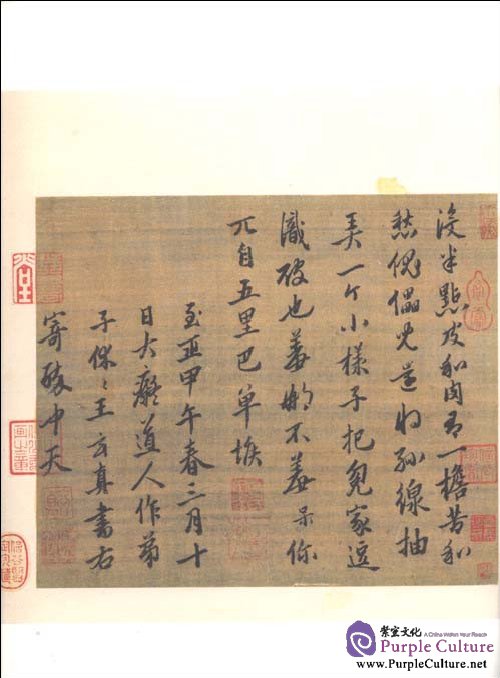 沒半點皮和肉有一擔苦和
愁傀儡兒還將絲線抽
弄一个小樣子把冤家逗
識破也羞那不羞呆你
兀自五里巴单堠
至正甲午春三月十
日大癡道人作弟
子休〻王玄真書右
寄醉中天
文化 A China Within Your Reach
Purple Culture
www.PurpleCulture.net